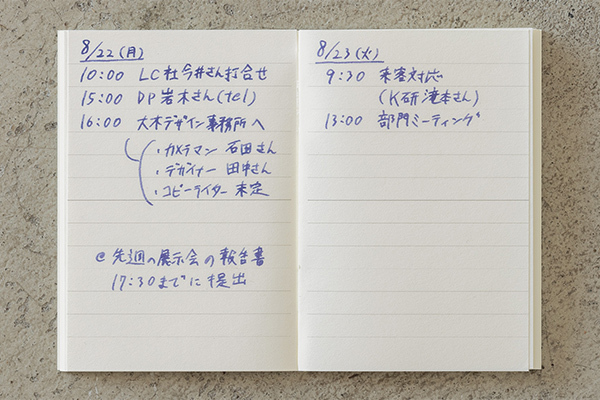 8/22(月)
10:00 LC社今井さん打合せ
15:00 DP岩木さん(tel)
16:00 大木デザイン事務所へ
・カメラマン 石田さん
・デザイナー 田中さん
・コピーライター 未定
@先週の展示会の報告書
17:30までに提出
8/23(火)
9:30 来客対応
(K研 滝本さん)
13:00 部門ミーティング